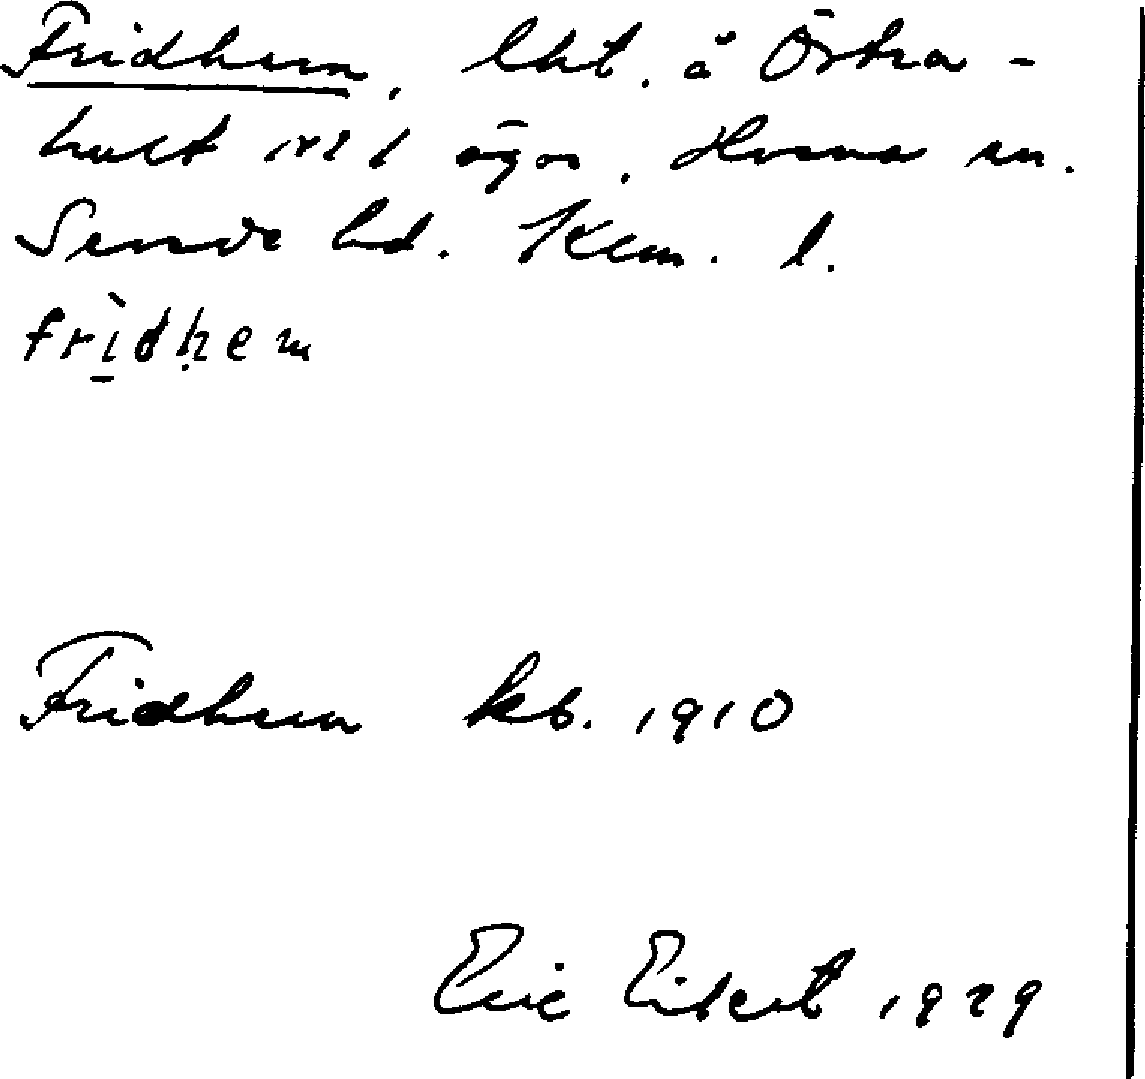 Fridhem, lht. å Östra-
hult nr 1 ägor, Horns sn.
Sunds hd. Klm. l.
frì̱dḥem
Fridhem kb. 1910
Eric Elgert 1929